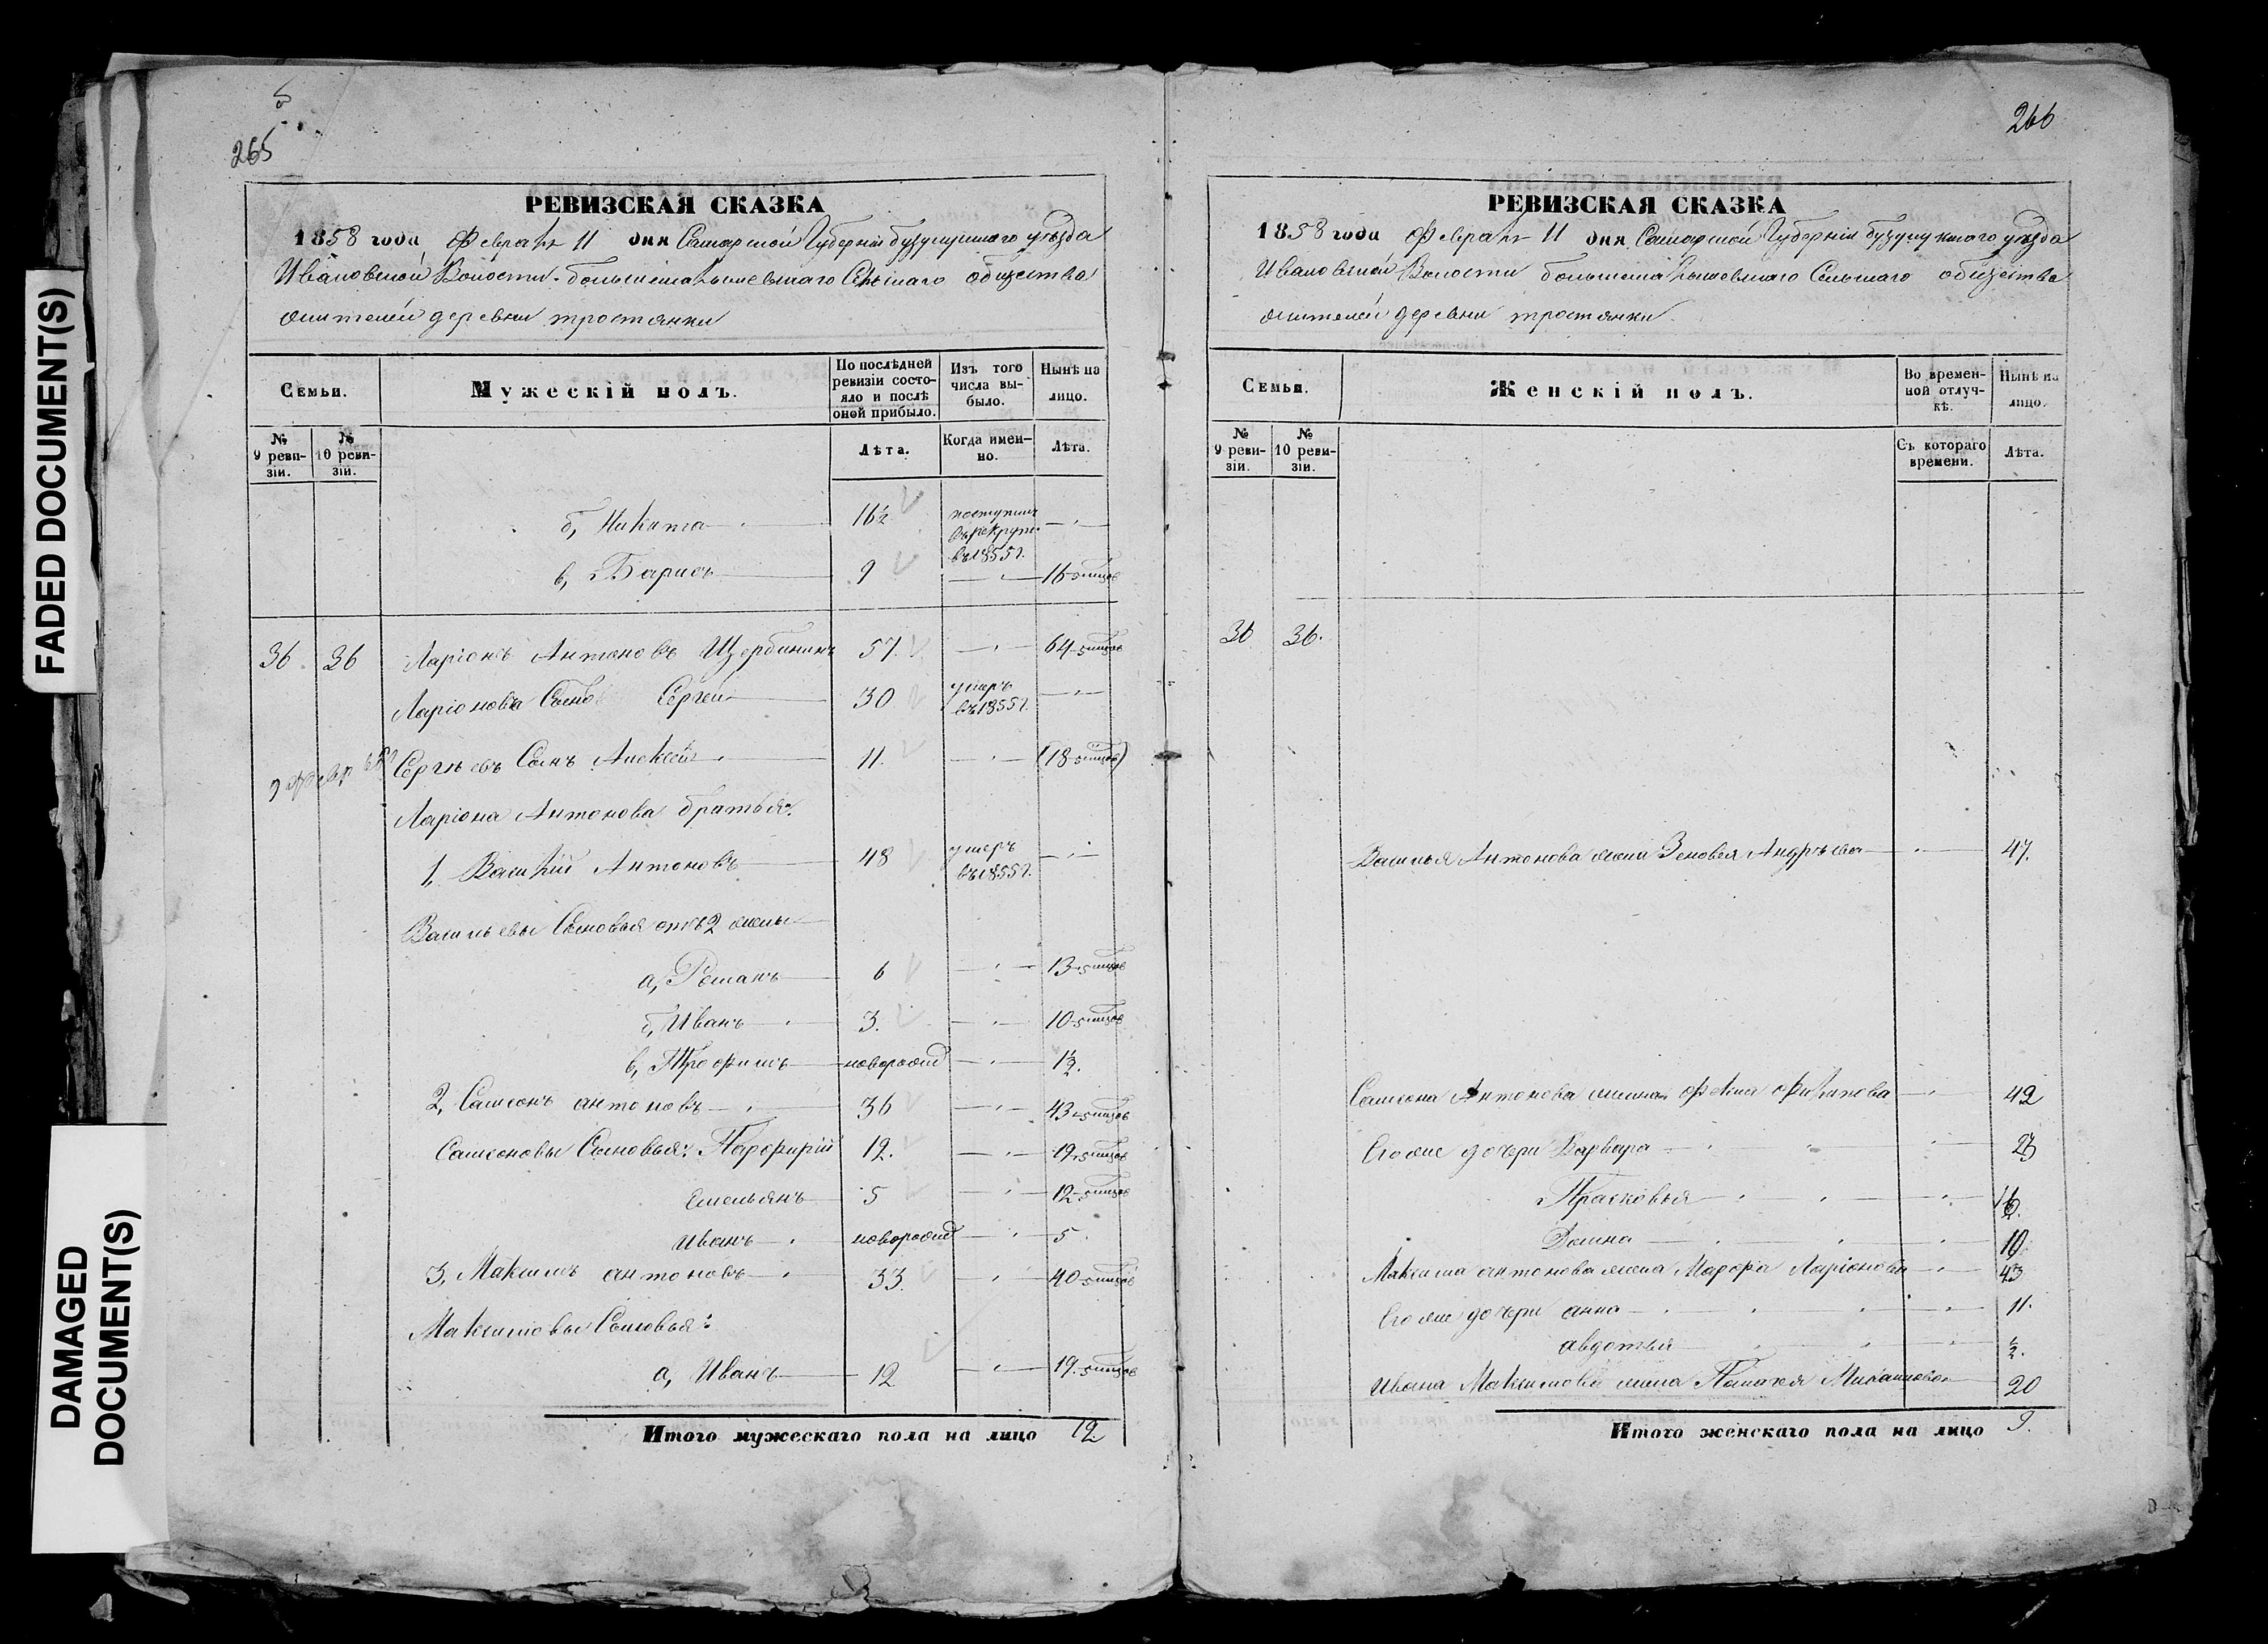 FADED DOCUMENT(S)
DAMAGED
DOCUMENT(S)
265
РЕВИЗСКАЯ СКАЗКА
1858 года Февраля 11 дня Самарской Губернии бузулукскаго уѣзда
Ивановской Волости Сельскаго общества
жителей деревни тростянки
Семьи.
Мужескій полъ.
По послѣдней ревизіи состояло и послѣ оной прибыло.
Изъ того числа выбыло.
Нынѣ на лицо.
№ 9 ревизіи.
№ 10 ревизіи.
Лѣта.
Когда именно.
Лѣта.
б, Никита 16½ поступилъ въ рекруты въ 1855 г.
в, Барисъ 9 16
36 36 Ларіонъ Антоновъ Щербининъ 57 64
Ларіонова Сынъ Сергей 30 умеръ въ 1855 г.
Сергѣевъ Сынъ Алексей 11. (18)
Ларіона Антонова братья:
1, Василій Антоновъ 48 умеръ въ 1855 г.
Васильевы Сыновья отъ 2 жены
а, Романъ 6 13
б, Иванъ 3. 10
в, Трофимъ новорожд 1½.
2, Самсонъ антоновъ 36 43
Самсоновы Сыновья: Парфирій 12. 19
Емельянъ 5 12
Иванъ новорожд 5.
3, Максимъ антоновъ 33. 40
Максимовы Сыновья:
а, Иванъ 12 19
Итого мужескаго пола на лицо 12
266
РЕВИЗСКАЯ СКАЗКА
1858 года Февраля 11 дня Самарской Губерніи бузулукскаго уѣзда
Ивановской Волости Сельскаго общества
жителей деревни тростянки
Семьи.
Женскій полъ.
Во временной отлучкѣ.
Нынѣ на лицо.
№ 9 ревизіи.
№ 10 ревизіи.
Съ котораго времени.
Лѣта.
36 36.
Василья Антонова жена Зеновья Андрѣева 47.
Самсона Антонова жена Филипова 42
Его же дочери Варвара
Прасковья
Домна 10
Максима антонова жена Марфа Ларіонова 43
Его же дочери анна 11.
авдотья ½.
Ивана Максимова жена 20
Итого женскаго пола на лицо 9.